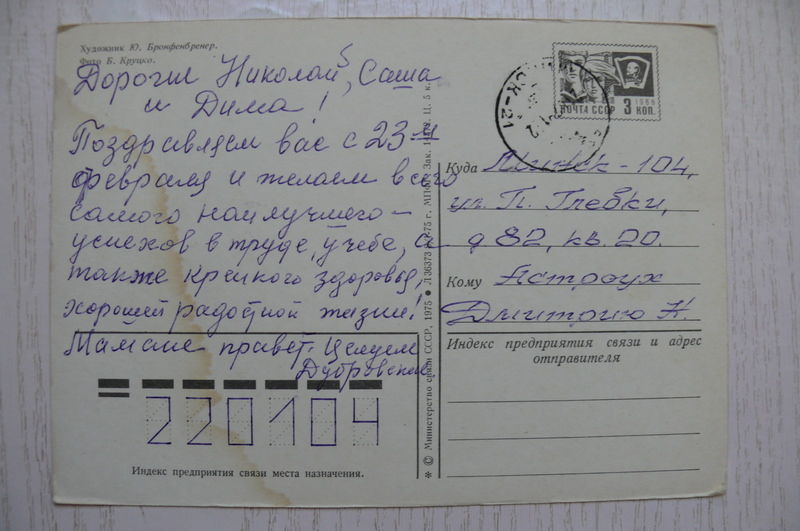 Художник Ю. Бронфенбренер.
Фото Б. Круцко.
Дорогие Николай, Саша
и Дима!
Поздравляем вас с 23-м
февраля и желаем всего
самого наилучшего –
успехов в труде, учебе, а
также крепкого здоровья,
хорошей радостной жизни!
Мамане привет. Целуем
Дубровские
220104
Индекс предприятия связи места назначения.
© Министерство связи СССР, 1975
ПОЧТА СССР 3 КОП.
1966
Куда Минск - 104,
ул. П. Глебки,
д 82, кв. 20.
Кому Астроух
Дмитрию Н.
Индекс предприятия связи и адрес
отправителя